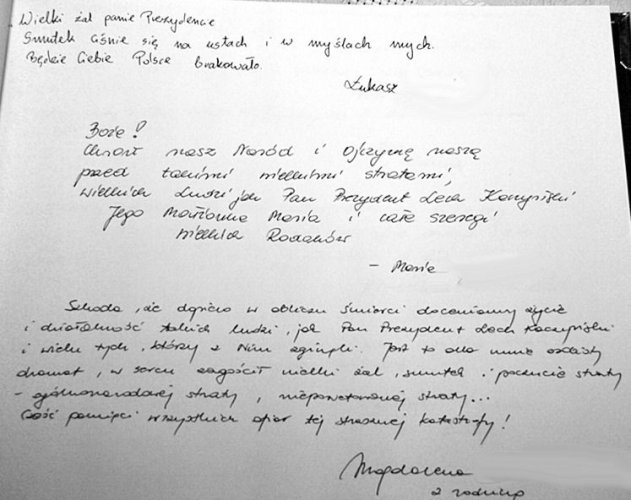 Wielki żal panie Prezydencie
Smutek ciśnie się na ustach i w myślach mych.
Będzie Ciebie Polsce brakowało.
Łukasz
Boże!
Chroń nasz Naród i Ojczyznę naszą
przed takimi wielkimi stratami,
wielkich Ludzi jak Pan Prezydent Lech Kaczyński
Jego Małżonka Maria i całe szeregi
wielkich Rodaków
- Maria
Szkoda, że dopiero w obliczu śmierci doceniamy życie
i działalność takich ludzi, jak Pan Prezydent Lech Kaczyński
i wielu tych, którzy z Nim zginęli. Jest to dla mnie osobisty
dramat, w sercu zagościł wielki żal, smutek i poczucie straty
- ogólnonarodowej straty, niepowetowanej straty...
Cześć pamięci wszystkich ofiar tej strasznej katastrofy!
Magdalena
z rodziną